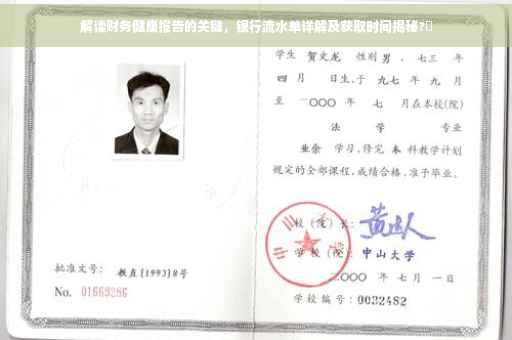 解读财务健康报告的关键，银行流水单详解及获取时间揭秘?
学生 贺文龙 性别 男，七三 年
四 月 日生，于 九七 年 九 月
至 二〇〇〇 年 七 月在本校(院)
法 学 专业
业余 学习，修完 本 科教学计划
规定的全部课程，成绩合格，准予毕业。
校（院）长：
学校（院）：中山大学
二〇〇〇 年 七 月 一 日
批准文号： 教直[1993]8号
No. 01663286
学校编号：0032482